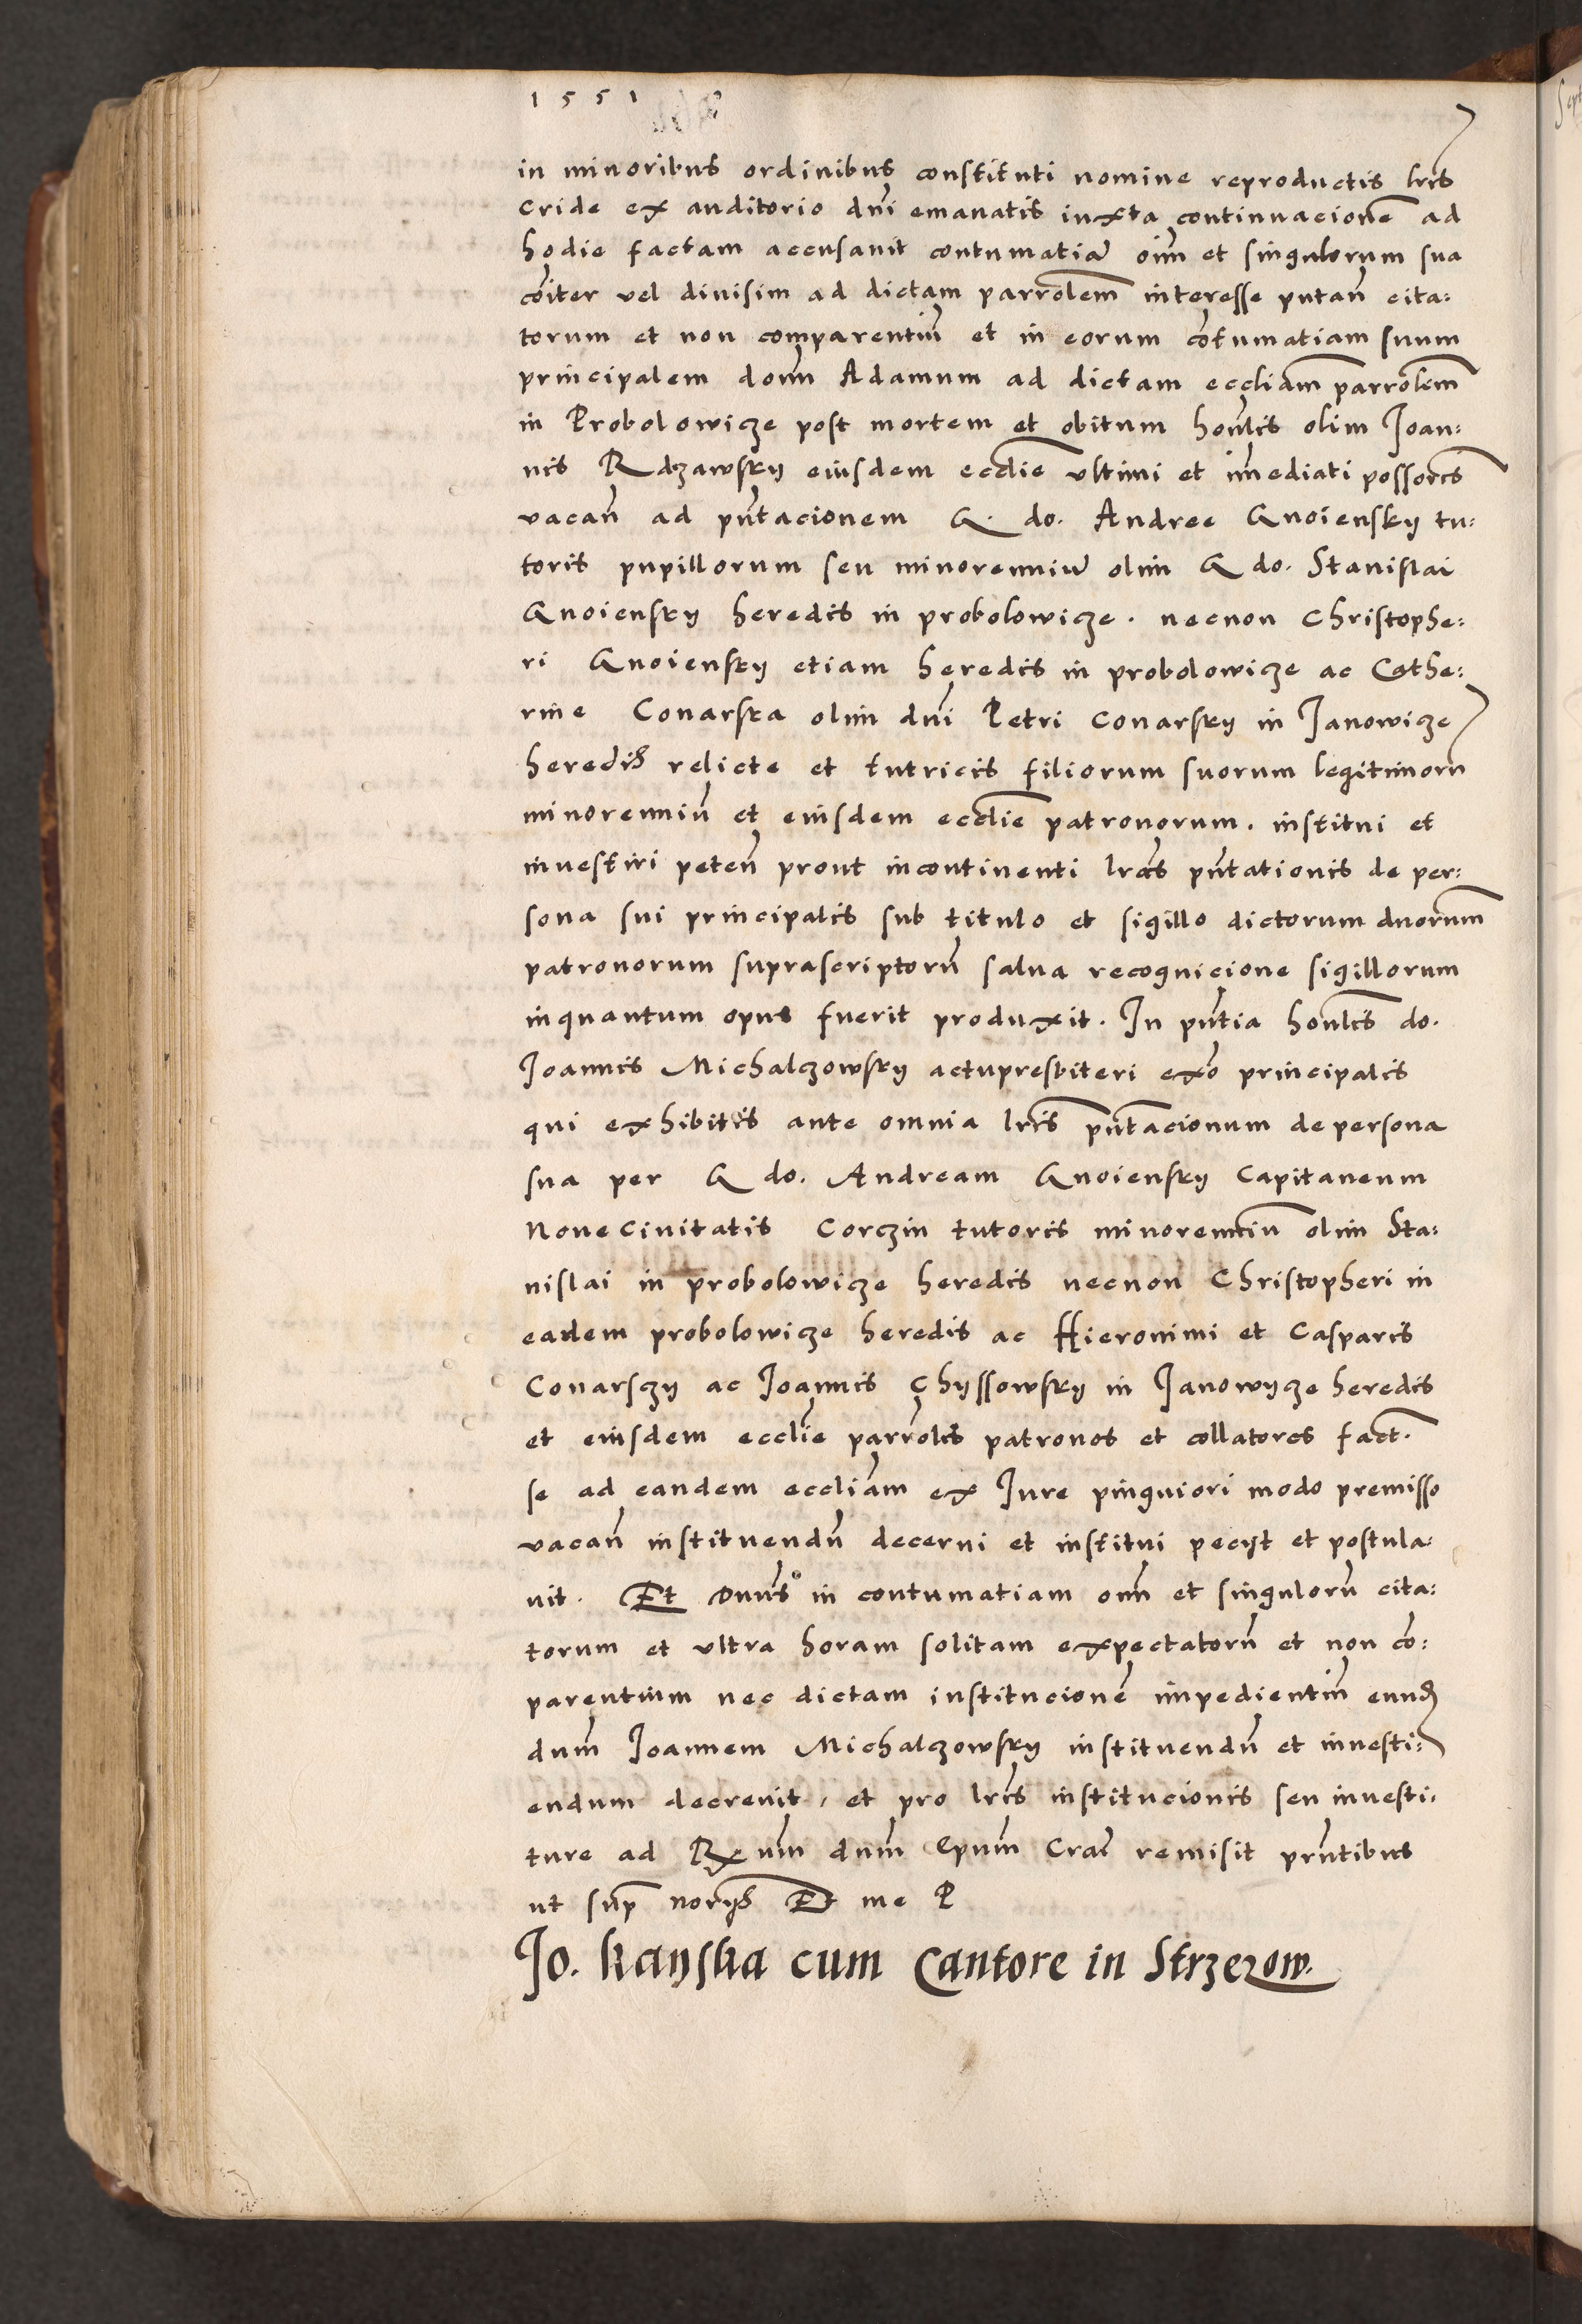 1551
in minoribus ordinibus constituti nomine reproductis lris
cride ex auditorio dni emanatis iuxta continuacione ad
hodie factam accusauit contumatia oim et singulorum sua
coiter vel diuisim ad dictam parrolem interesse putan cita:
torum et non comparentiu et in eorum cotumatiam suum
principalem donu Adamum ad dictam eccliam parrolem
in Probolowicze post mortem et obitum honlis olim Joan:
nis Rdzawsky eiusdem ecclie vltimi et imediati possoris
vacan ad pntacionem G. do. Andree Gnoiensky tu:
toris pupillorum seu minorenniu olim G do. Stanislai
Gnoiensky heredis in probolowicze. necnon Christophe:
ri Gnoiensky etiam heredis in probolowicze ac Cathe:
rine Conarska olim dni Petri Conarsky in Janowicze
heredis relicte et tutricis filiorum suorum legitimoru
minorenniu et eiusdem ecclie patronorum. institui et
inuestiri peten prout incontinenti lras pntationis de per:
sona sui principalis sub titulo et sigillo dictorum duorum
patronorum suprascriptoru salua recognicione sigillorum
inquantum opus fuerit produxit. In pntia honlis do.
Joannis Michalczowsky actupresbiteri ex o principalis
qui exhibitis ante omnia lris pntacionum de persona
sua per G do. Andream Gnoiensky Capitaneum
Noue Ciuitatis Corczin tutoris minorenniu olim Sta:
nislai in probolowicze heredis necnon Christopheri in
eadem probolowicze heredis ac Hieronimi et Casparis
Conarsczy ac Joannis Chyssowsky in Janowycze heredis
et eiusdem ecclie parrolis patronos et collatores fact.
se ad eandem eccliam ex Jure pinguiori modo premisso
vacan instituendu decerni et institui pecyt et postula:
uit. Et Dnus in contumatiam oim et singuloru cita:
torum et vltra horam solitam expectatoru et non co:
parentium nec dictam institucione impedientiu eund
dum Joannem Michalczowsky instituendu et inuesti:
endum decreuit, et pro lris institucionis seu inuesti:
ture ad Rx um dum Epum Crac remisit pntibus
ut sup norys Et me P
Jo. kayska cum Cantore in Strzezow.